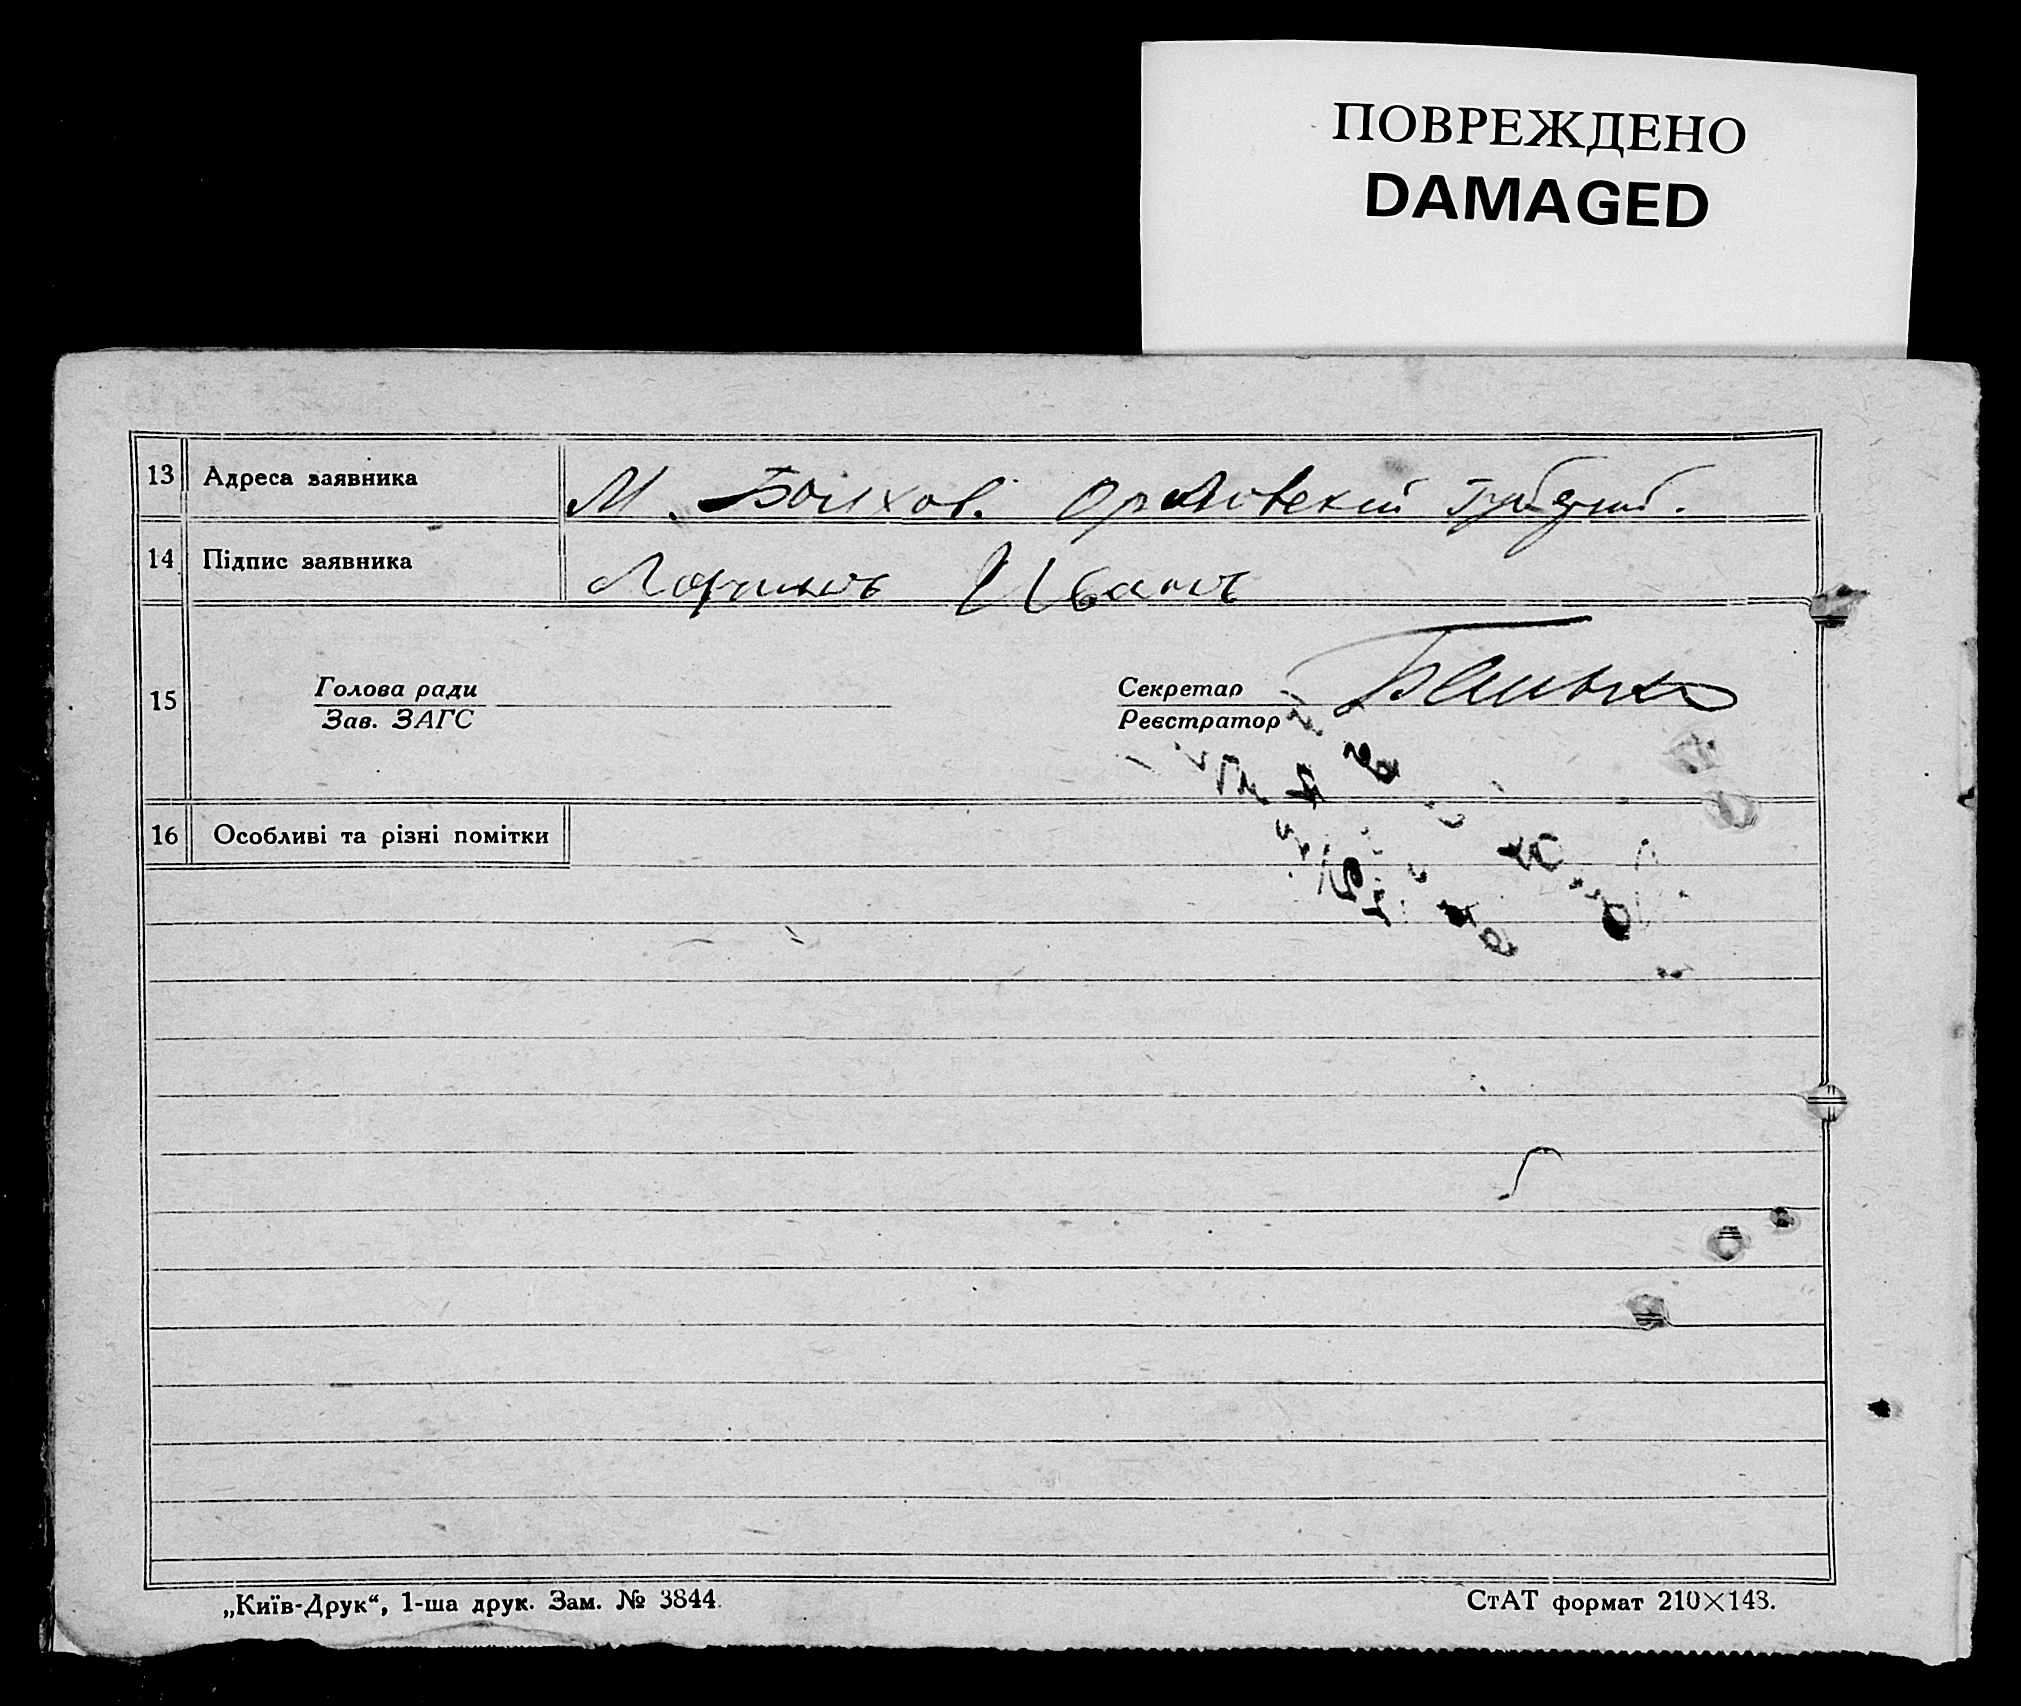 ПОВРЕЖДЕНО
DAMAGED
13 Адреса заявника М. Болхов. Орловскій губерніи.
14 Підпис заявника Иванъ
15
Голова ради Секретар
Зав. ЗАГС Реєстратор
16 Особливі та різні помітки
„Київ-Друк“, 1-ша друк. Зам. № 3844. СтАТ формат 210×143.